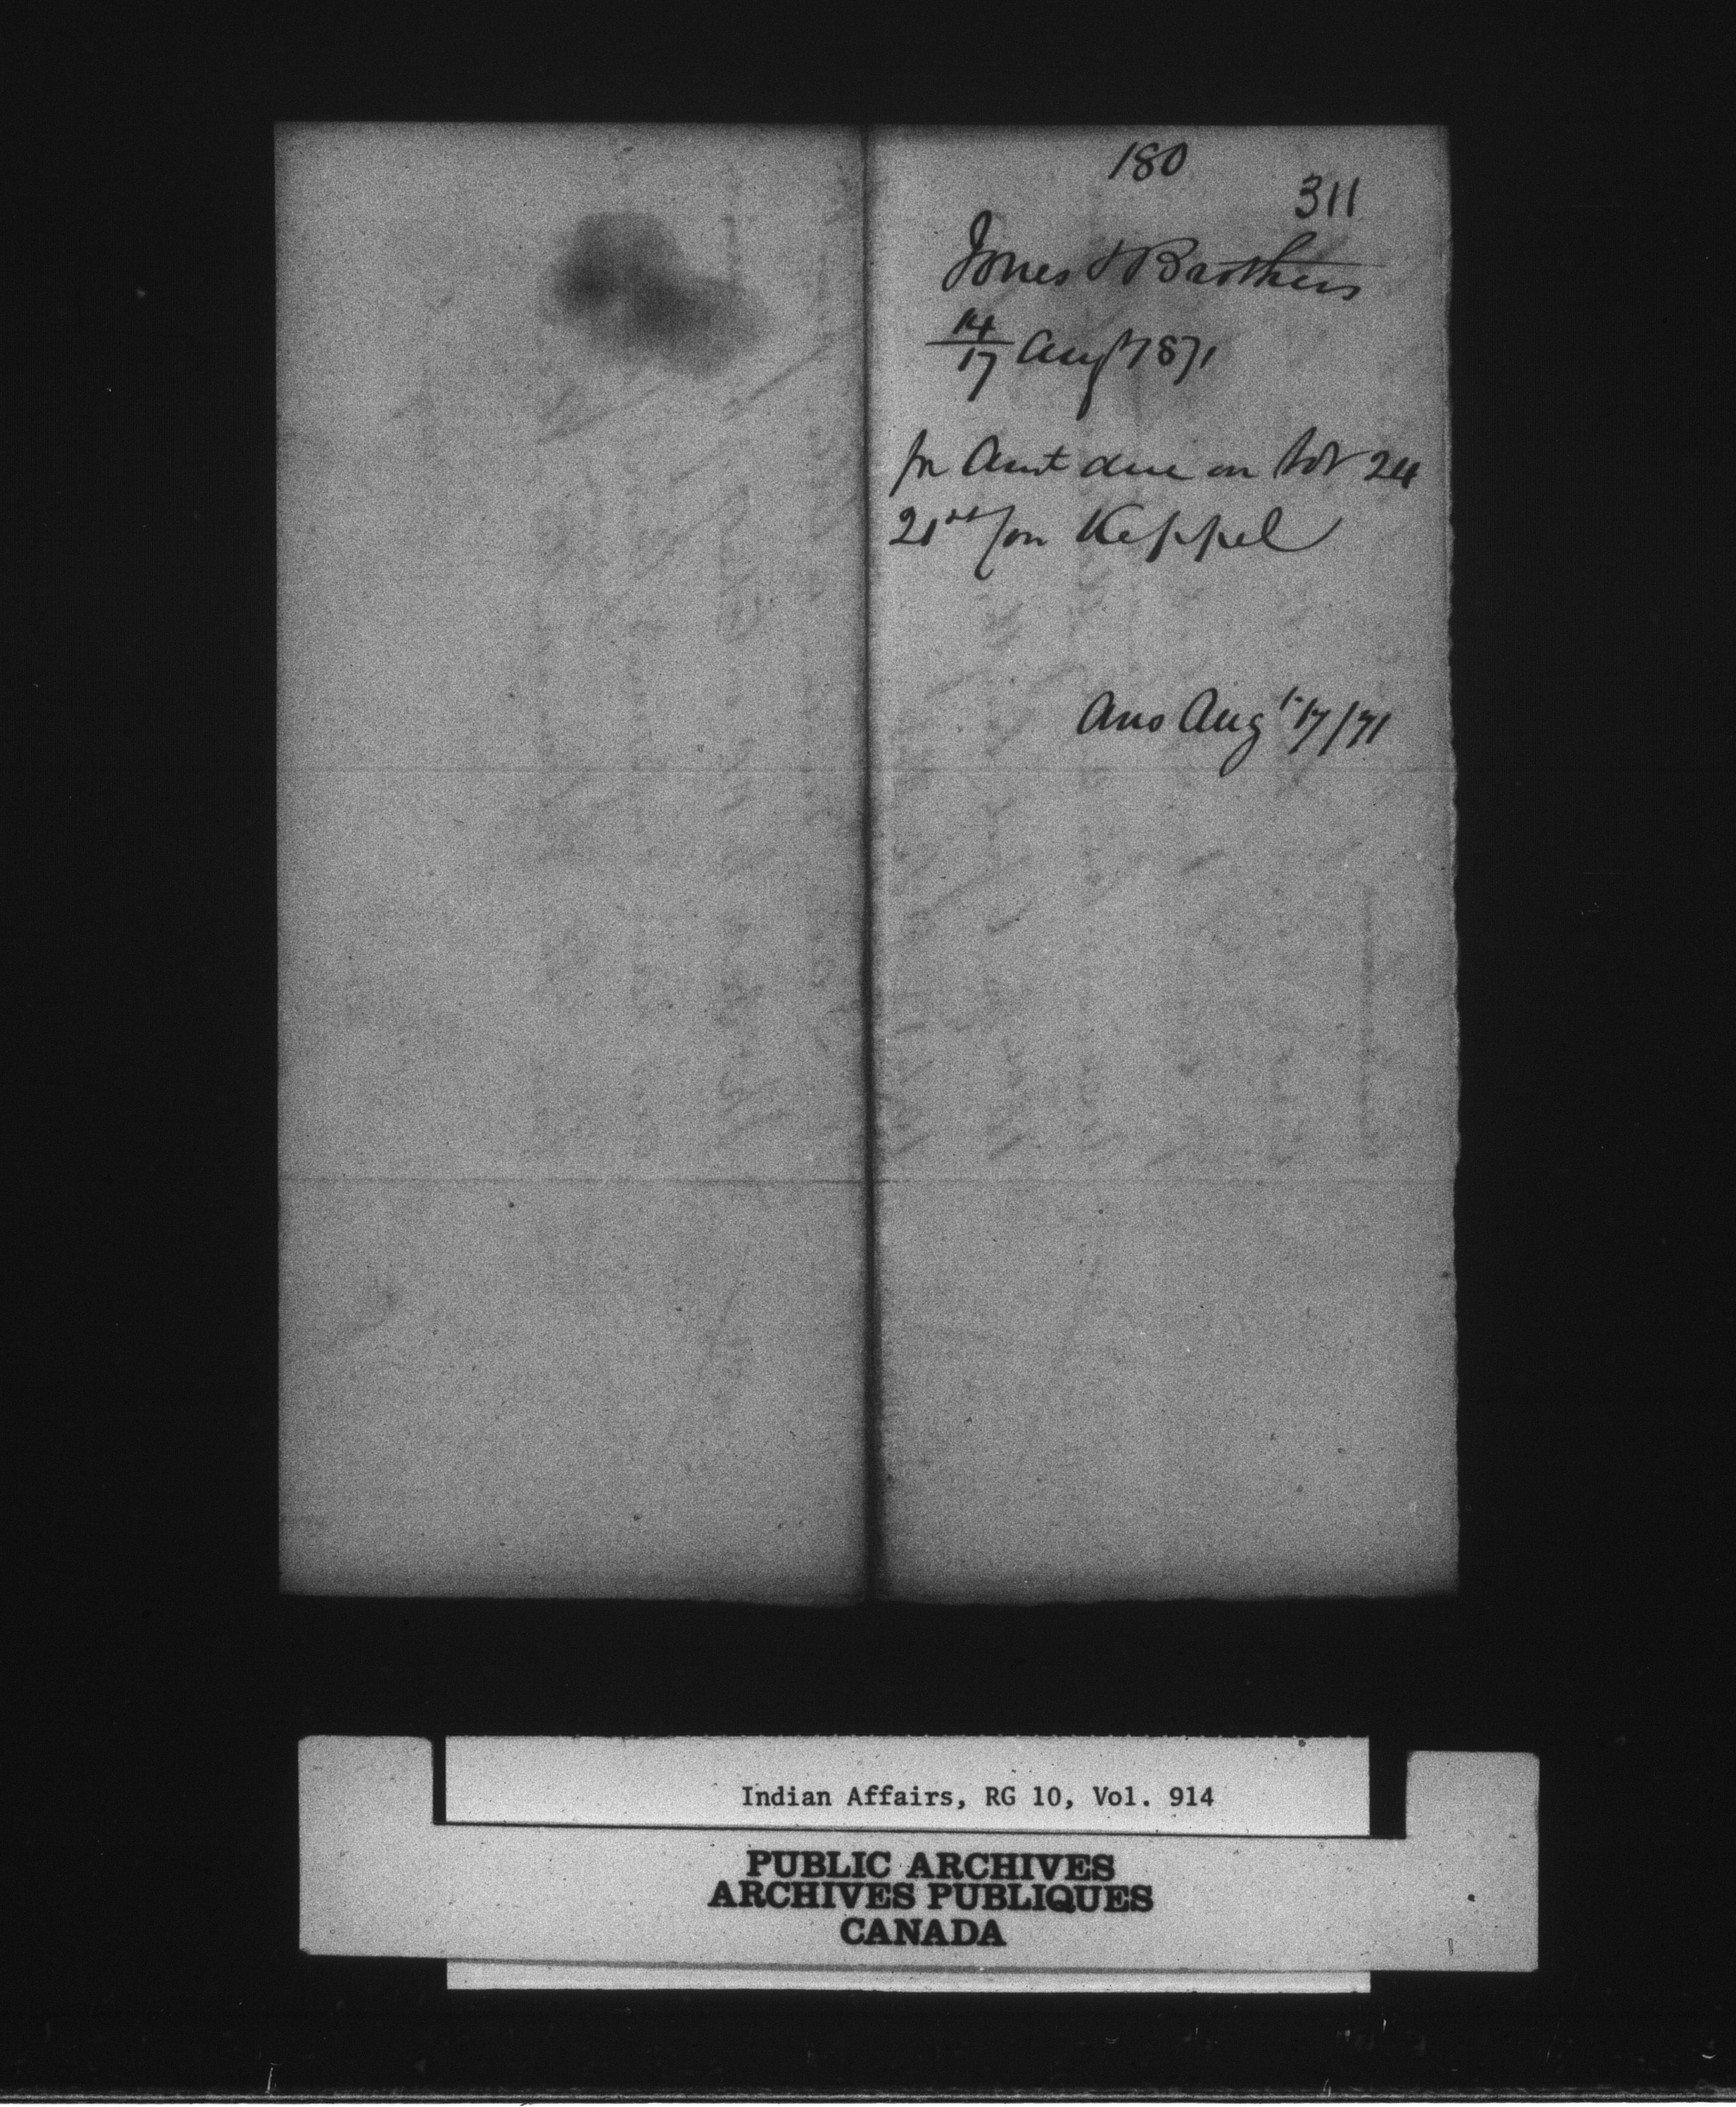 180
311
Jones & Brothers
14/17 Augt 1871
for Amt due on lot 24
21st Con Keppel
Ans Augt 17/71
Indian Affairs, RG 10, Vol. 914
PUBLIC ARCHIVES
ARCHIVES PUBLIQUES
CANADA